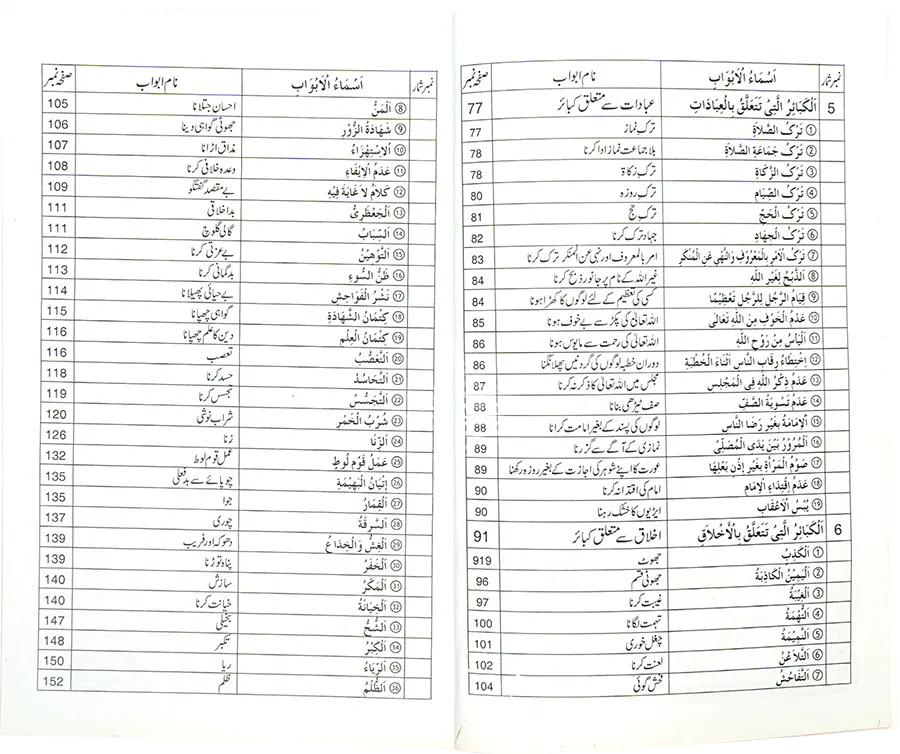 نمبر شمار اَسْمَاءُ الْاَبْوَابِ نام ابواب صفحہ نمبر
5 اَلْكَبَائِرُ الَّتِىْ تَتَعَلَّقُ بِالْعِبَادَاتِ عبادات سے متعلق کبائر 77
① تَرْكُ الصَّلاَةِ ترک نماز 77
② تَرْكُ جَمَاعَةِ الصَّلاَةِ بلا جماعت نماز ادا کرنا 78
③ تَرْكُ الزَّكَاةِ ترک زکاۃ 78
④ تَرْكُ الصِّيَامِ ترک روزہ 80
⑤ تَرْكُ الْحَجِّ ترک حج 81
⑥ تَرْكُ الْجِهَادِ جہاد ترک کرنا 82
⑦ تَرْكُ الْاَمْرِ بِالْمَعْرُوْفِ وَالنَّهْىِ عَنِ الْمُنْكَرِ امر بالمعروف اور نہی عن المنکر ترک کرنا 83
⑧ اَلذَّبْحُ لِغَيْرِ اللّٰهِ غیر اللہ کے نام پر جانور ذبح کرنا 84
⑨ قِيَامُ الرَّجُلِ لِلرَّجُلِ تَعْظِيْمًا کسی کی تعظیم کے لئے لوگوں کا کھڑا ہونا 84
⑩ عَدَمُ الْخَوْفِ مِنَ اللّٰهِ تَعَالٰى اللہ تعالیٰ کی پکڑ سے بے خوف ہونا 85
⑪ اَلْيَاْسُ مِنْ رَوْحِ اللّٰهِ اللہ تعالیٰ کی رحمت سے مایوس ہونا 86
⑫ اِخْتِطَاءُ رِقَابِ النَّاسِ اَثْنَاءَ الْخُطْبَةِ دوران خطبہ لوگوں کی گردنیں پھلانگنا 86
⑬ عَدَمُ ذِكْرُ اللّٰهِ فِى الْمَجْلِسِ مجلس میں اللہ تعالیٰ کا ذکر نہ کرنا 87
⑭ عَدَمُ تَسْوِيَةُ الصَّفِّ صف ٹیڑھی بنانا 88
⑮ اَلْاِمَامَةُ بِغَيْرِ رَضَا النَّاسِ لوگوں کی پسند کے بغیر امامت کرانا 88
⑯ اَلْمُرُوْرُ بَيْنَ يَدَىِ الْمُصَلِّىْ نمازی کے آگے سے گزرنا 89
⑰ صَوْمُ الْمَرْأَةِ بِغَيْرِ اِذْنِ بَعْلِهَا عورت کا اپنے شوہر کی اجازت کے بغیر روزہ رکھنا 89
⑱ عَدَمُ اِقْتِدَاءِ الْاِمَامِ امام کی اقتدا نہ کرنا 90
⑲ يُبْسُ الْاَعْقَابِ ایڑیوں کا خشک رہنا 90
6 اَلْكَبَائِرُ الَّتِىْ تَتَعَلَّقُ بِالْاَخْلاَقِ اخلاق سے متعلق کبائر 91
① اَلْكَذِبُ جھوٹ 919
② اَلْيَمِيْنُ الْكَاذِبَةُ جھوٹی قسم 96
③ اَلْغِيْبَةُ غیبت کرنا 97
④ اَلتُّهْمَةُ تہمت لگانا 100
⑤ اَلنَّمِيْمَةُ چغل خوری 101
⑥ اَلتَّلاَعُنُ لعنت کرنا 102
⑦ اَلتَّفَاحُشُ فحش گوئی 104
نمبر شمار اَسْمَاءُ الْاَبْوَابِ نام ابواب صفحہ نمبر
⑧ اَلْمَنُّ احسان جتلانا 105
⑨ شَهَادَةُ الزُّوْرِ جھوٹی گواہی دینا 106
⑩ اَلْاِسْتِهْزَاءُ مذاق اڑانا 107
⑪ عَدَمُ الْاِيْفَاءِ وعدہ خلافی کرنا 108
⑫ كَلاَمٌ لاَ غَايَةَ فِيْهِ بے مقصد گفتگو 109
⑬ اَلْجَعْظَرِىُّ بد اخلاقی 111
⑭ اَلسِّبَابُ گالی گلوچ 111
⑮ اَلتَّوْهِيْنُ بے عزتی کرنا 112
⑯ ظَنُّ السُّوْءِ بدگمانی کرنا 113
⑰ نَشْرُ الْفَوَاحِشِ بے حیائی پھیلانا 114
⑱ كِتْمَانُ الشَّهَادَةِ گواہی چھپانا 115
⑲ كِتْمَانُ الْعِلْمِ دین کا علم چھپانا 116
⑳ اَلتَّعَصُّبُ تعصب 116
㉑ اَلتَّحَاسُدُ حسد کرنا 118
㉒ اَلتَّجَسُّسُ تجسس کرنا 119
㉓ شُرْبُ الْخَمْرِ شراب نوشی 120
㉔ اَلزِّنَا زنا 126
㉕ عَمَلُ قَوْمِ لُوْطٍ عمل قوم لوط 132
㉖ اِتْيَانُ الْبَهِيْمَةِ چوپائے سے بدفعلی 135
㉗ اَلْقِمَارُ جوا 135
㉘ اَلسَّرِقَةُ چوری 137
㉙ اَلْغِشُّ وَالْخِدَاعُ دھوکہ اور فریب 139
㉚ اَلْخَفْرُ پناہ توڑنا 139
㉛ اَلْمَكْرُ سازش 140
㉜ اَلْخِيَانَةُ خیانت کرنا 140
㉝ اَلشُّحُّ بخیلی 147
㉞ اَلْكِبْرُ تکبر 148
㉟ اَلرِّيَاءُ ریا 150
㊱ اَلظُّلْمُ ظلم 152